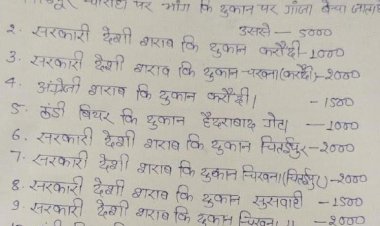 चौराहा पर भांग कि दुकान पर गांजा बेचा जाता
उससे - 5000
2. सरकारी देशी शराब कि दुकान करौंदी - 1000
3. सरकारी देशी शराब कि दुकान - चखना (करौंदी) - 2000
4. अंग्रेजी शराब कि दुकान करौंदी। - 1500
5. ठंडी बियर कि दुकान हैदराबाद गेट। - 1000
6. सरकारी देशी शराब कि दुकान चितईपुर - 2000
7. सरकारी देशी शराब कि दुकान चिखना (चितईपुर) - 2000
8. सरकारी देशी शराब कि दुकान सुसवाही - 1500
9. सरकारी देशी शराब कि दुकान चिखना 11 - 2000